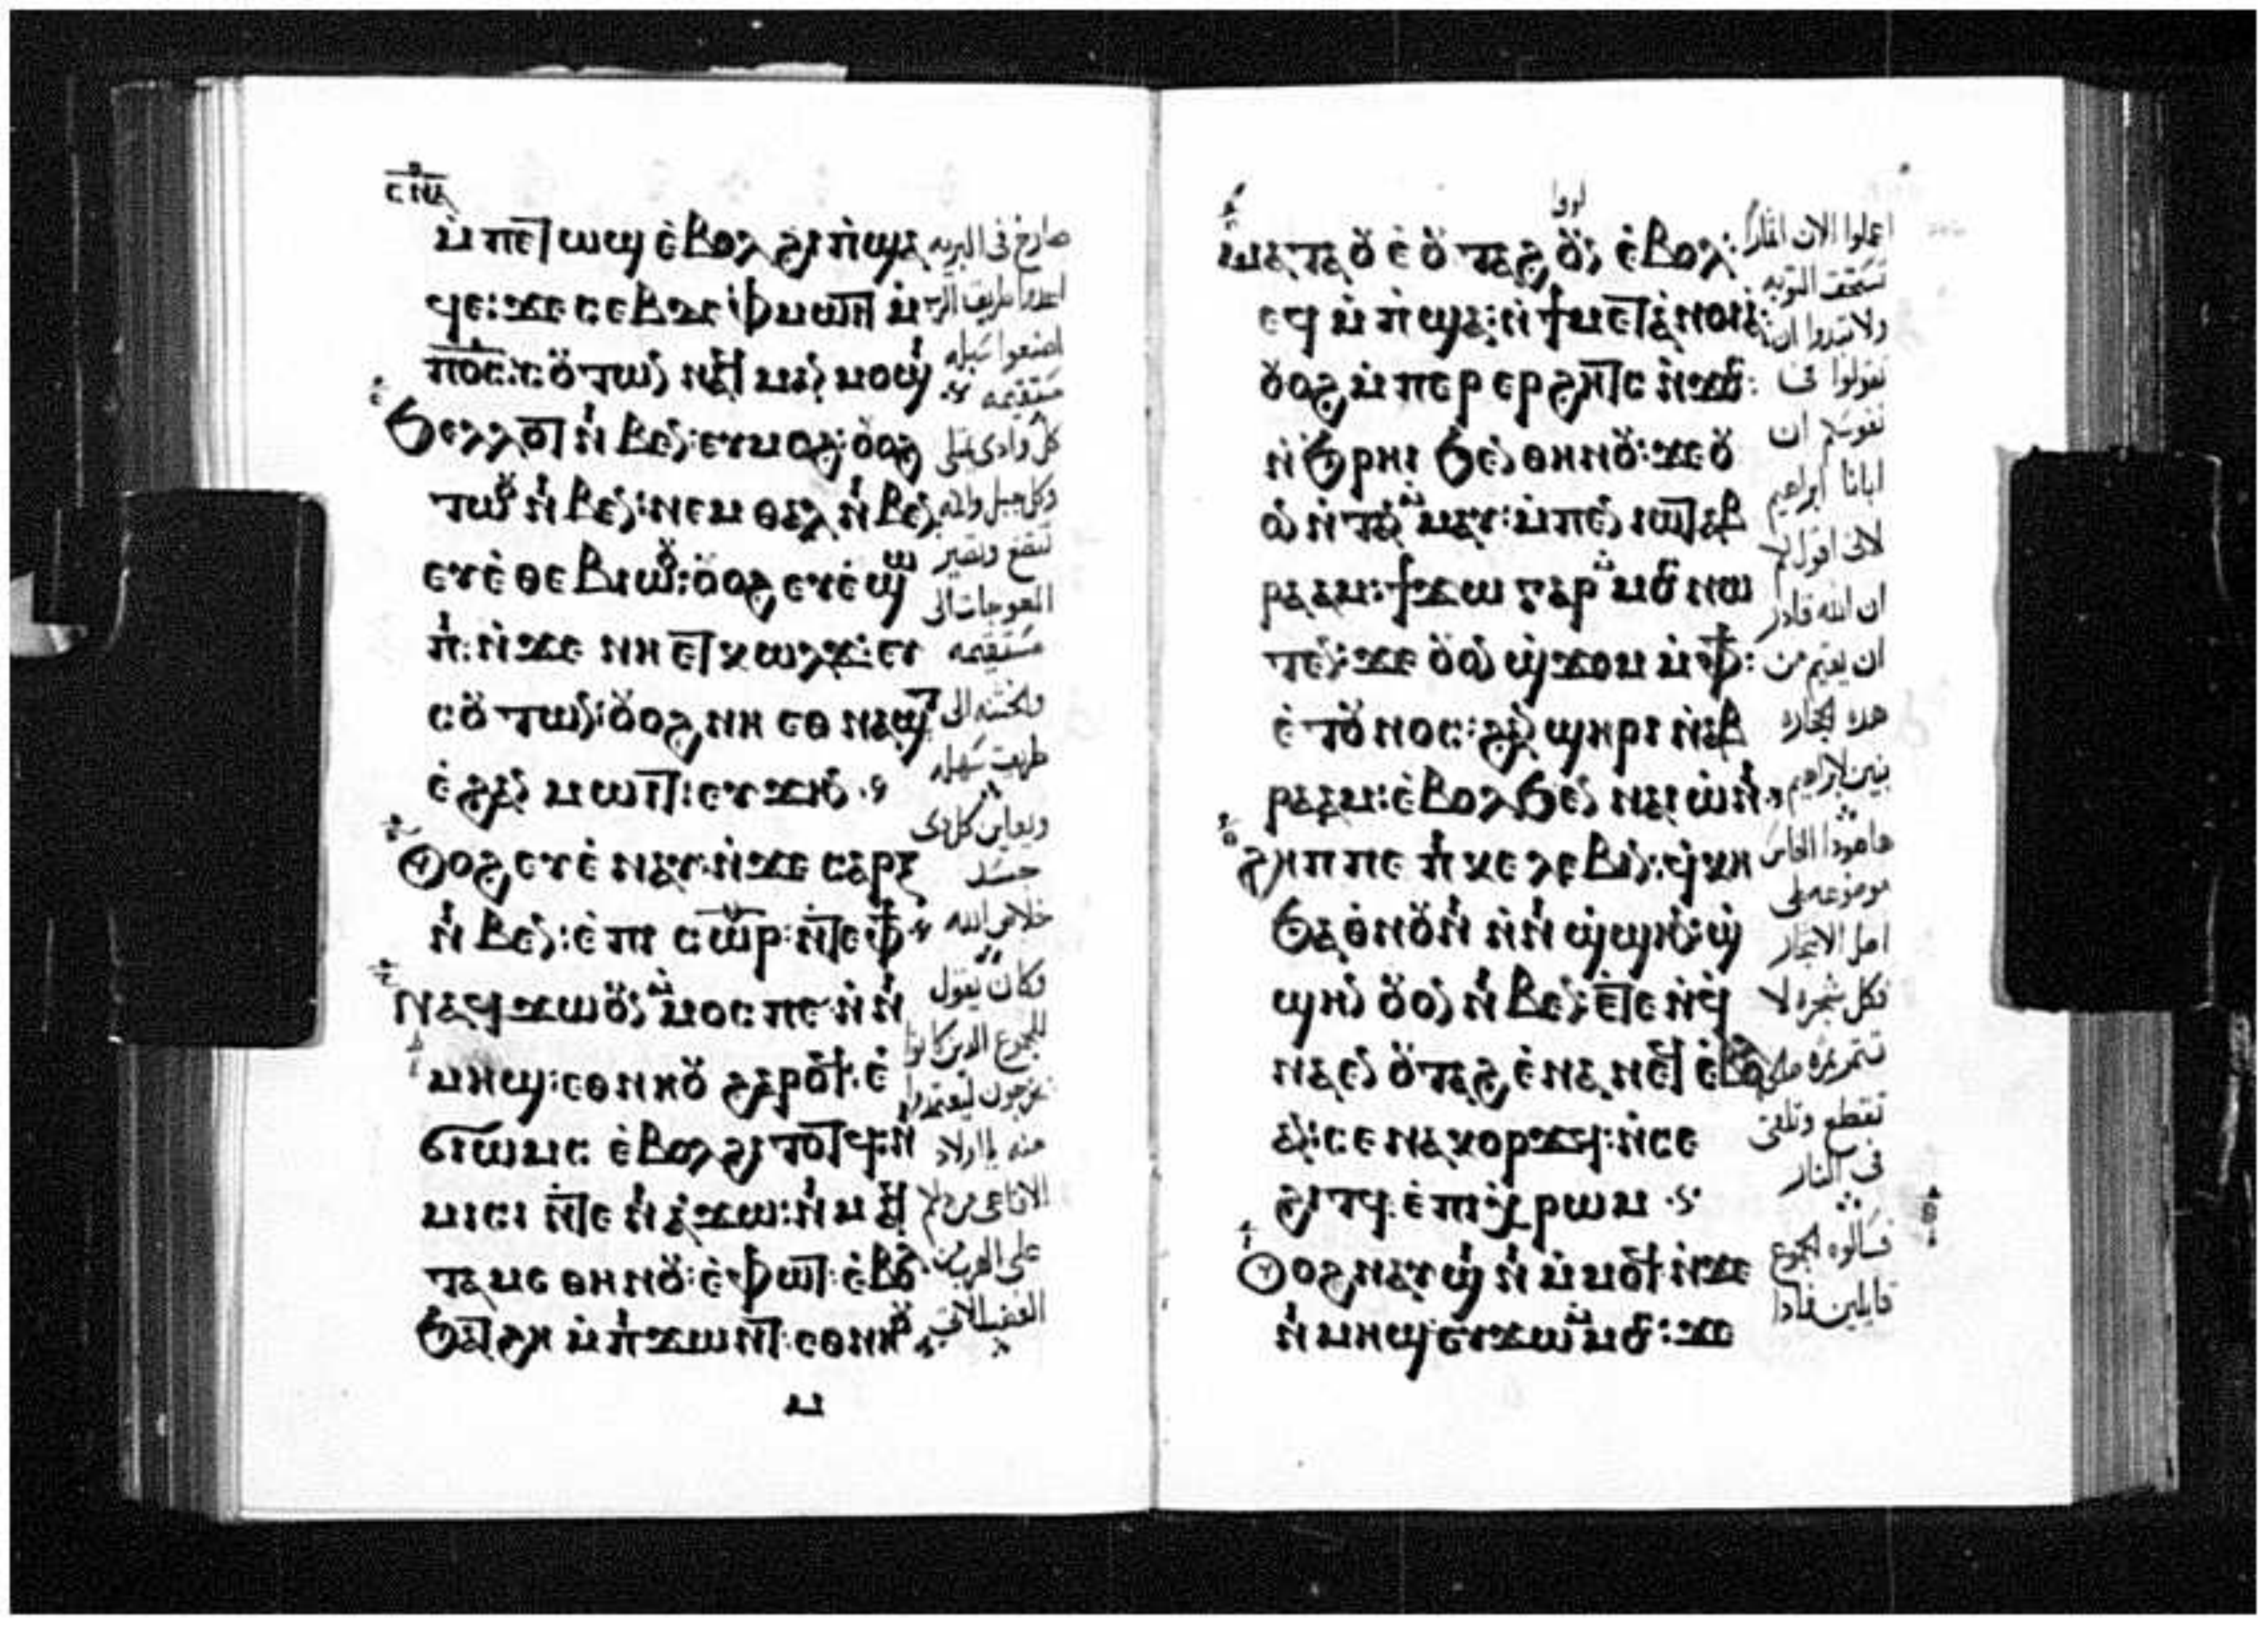 ⲙ̀ⲡⲉⲧⲱϣ ⲉ̀ⲃⲟⲗ ϩⲓ ⲡ̀ϣⲁ
ϥⲉ: ϫⲉ ⲥⲉⲃⲧⲉ ⲫ̀ⲙⲱⲓⲧ ⲙ̀
ⲡⲟ̅ⲥ̅: ⲥⲟⲩⲧⲱⲛ
ϧⲉⲗⲗⲟⲧ ⲛ̀ⲃⲉⲛ: ⲉⲩⲙⲟϩ: ⲟⲩⲟϩ
ⲧⲱⲟⲩ ⲛ̀ⲃⲉⲛ: ⲛⲉⲙ ⲑⲁⲗ ⲛ̀ⲃⲉⲛ:
ⲉⲩⲉ̀ⲑⲉⲃⲓⲱⲟⲩ: ⲟⲩⲟϩ ⲉⲩⲉ̀ϣⲱ
ⲡⲓ: ⲛ̀ϫⲉ ⲛⲏ ⲉⲧⲕⲱⲗϫ: ⲉⲩ
ⲥⲟⲩⲧⲱⲛ: ⲟⲩⲟϩ ⲛⲏ ⲉⲑⲛⲁϣⲧ
ⲉ̀ϩⲁⲛ ⲙⲱⲓⲧ: ⲉⲩϫⲏⲛ
ⲟⲩⲟϩ ⲉⲩⲉ̀ⲛⲁⲩ: ⲛ̀ϫⲉ ⲥⲁⲣⲝ
ⲛ̀ⲃⲉⲛ: ⲉ̀ⲡⲓ ⲥⲱⲣ: ⲛ̀ⲧⲉ ⲫϯ
ⲛⲁϥϫⲱ ⲟⲩⲛ ⲙ̀ⲙⲟⲥ ⲡⲉ ⲛ̀ⲛⲓ
ⲙⲏϣ: ⲉⲑⲛⲏⲟⲩ ϩⲁⲣⲟϥ: ⲉ̀
ϭⲓⲱⲙⲥ ⲉ̀ⲃⲟⲗ ϩⲓⲧⲟⲧϥ: ⲛⲓ
ⲙⲓⲥⲓ ⲛ̀ⲧⲉ ⲛⲓⲁ̀ϫⲱ: ⲛⲓⲙ ⲁϥ
ⲧⲁⲙⲉ ⲑⲏⲛⲟⲩ: ⲉ̀ⲫⲱⲧ: ⲉ̀ⲃⲟⲗ
ϧⲁⲧϩⲏ ⲙ̀ⲡⲓϫⲱⲛⲧ: ⲉⲑⲛⲏⲟⲩ
صارخ فى البريه
اعدوا طريق الرب
اصنعوا سبله
مستقيمه
كل وادى يمتلى
وتصير
المعوجات الى
مستقيمه
والخشنه الى
طريق سهله
ويعاين كل ذى
جسد
خلاص الله
فكان يقول
للجموع الذين كانوا
منه يا اولاد
الافاعى من دلكم
على الهرب من
الغضب الاتى
لوقا
ⲙⲁⲧⲁⲟⲩⲉ̀ ⲟⲩⲧⲁϩ ⲟⲩⲛ ⲉ̀ⲃⲟⲗ:
ⲉϥⲙ̀ⲡ̀ϣⲁ: ⲛ̀ϯⲙⲉⲧⲁⲛⲟⲓⲁ:
ⲟⲩⲟϩ ⲙ̀ⲡⲉⲣⲉⲣϩⲏⲧⲥ ⲛ̀ϫⲟⲥ:
ⲛ̀ϧⲣⲏⲓ ϧⲉⲛ ⲑⲏⲛⲟⲩ: ϫⲉ ⲟⲩ
ⲟⲛ ⲛ̀ⲧⲁⲛ ⲙ̀ⲙⲁⲩ: ⲙ̀ⲡⲉⲛⲓⲱⲧ ⲁⲃ
ⲣⲁⲁⲙ: ϯϫⲱ ⲅⲁⲣ ⲙ̀ⲙⲟⲥ ⲛⲱ
ⲧⲉⲛ: ϫⲉ ⲟⲩⲟⲛ ϣϫⲟⲙ ⲙ̀ⲫϯ:
ⲉ̀ⲧⲟⲩⲛⲟⲥ: ϩⲁⲛ ϣⲏⲣⲓ ⲛ̀ⲁⲃ
ⲣⲁⲁⲙ: ⲉ̀ⲃⲟⲗ ϧⲉⲛ ⲛⲁⲓ ⲱ̀ⲛⲓ
ϩⲏⲡⲡⲉ ⲡⲓ ⲕⲉⲗⲉⲃⲓⲛ: ϥ̀ⲭⲏ
ϧⲁ ⲑ̀ⲛⲟⲩⲛⲓ ⲛ̀ⲛⲓ ϣ̀ϣⲏⲛ: ϣ̀
ϣⲏⲛ ⲟⲩⲛ ⲛ̀ⲃⲉⲛ: ⲉ̀ⲧⲉ ⲛ̀ϥ
ⲛⲁⲉⲛ ⲟⲩⲧⲁϩ ⲉ̀ⲛⲁⲛⲉϥ ⲉ̀ⲃⲟⲗ
ⲁⲛ: ⲥⲉⲛⲁⲕⲟⲣϫϥ: ⲛ̀ⲥⲉ
ϩⲓⲧϥ: ⲉ̀ⲡⲓⲭⲣⲱⲙ
ⲟⲩⲟϩ ⲛⲁⲩϣⲓⲛⲓ ⲙ̀ⲙⲟϥ: ⲛ̀ϫⲉ
ⲛⲓⲙⲏϣ ⲉⲩϫⲱ ⲙ̀ⲙⲟⲥ: ϫⲉ
اعملوا الان اثمارا
تستحق التوبه
ولا تبدوا ان
تقولوا فى
نفوسكم ان
ابانا ابراهيم
لانى اقول لكم
ان الله قادر
ان يقيم من
هذه الحجاره
بنين لابراهيم
ها هوذا الفاس
موضوعه على
اصل الاشجار
فكل شجره لا
تثمر
تقطع وتلقى
فى النار
فسالوه الجموع
قايلين ماذا